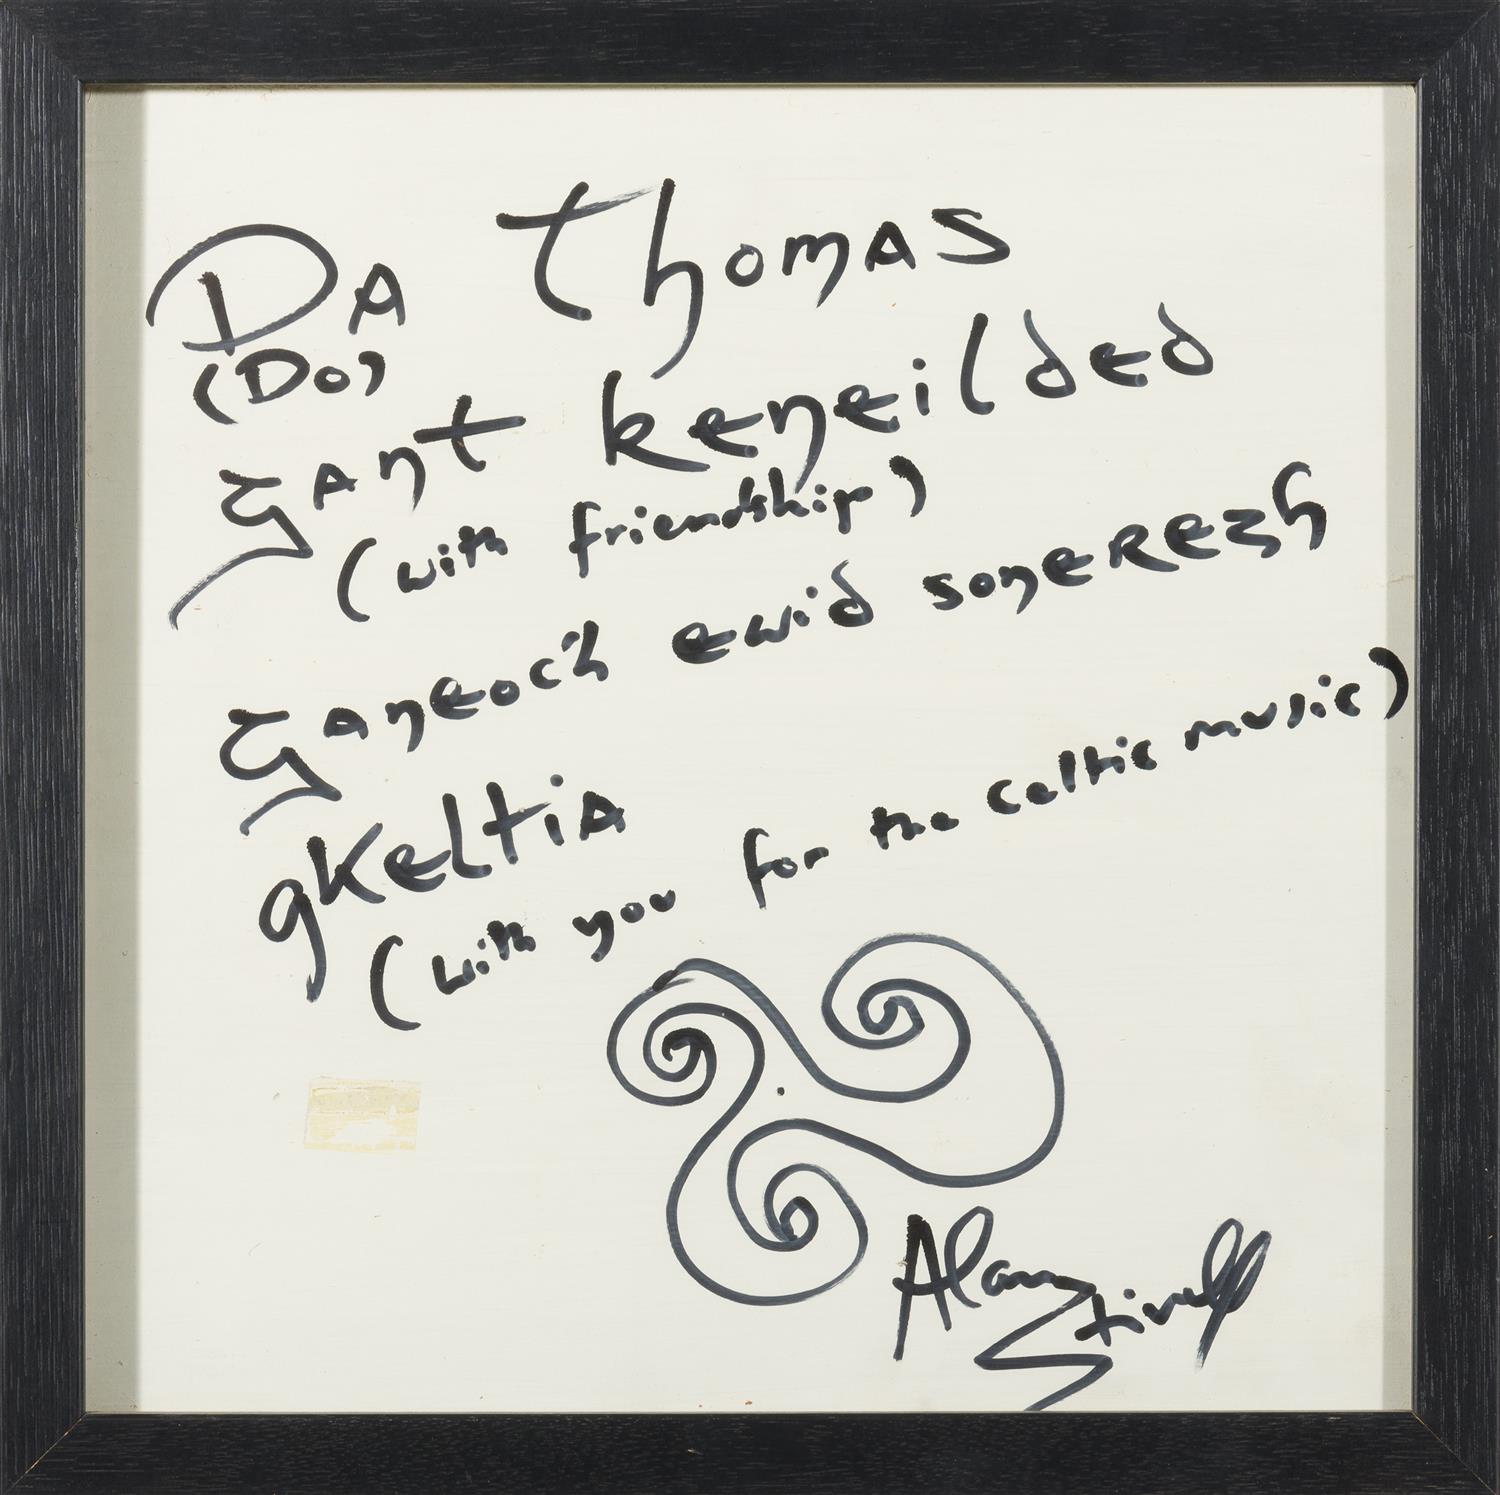 Da Thomas
(Do)
gant keneilded
(with friendship)
ganeoc'h ewid sonerezh
gKeltia
(with you for the celtic music)
Alan Stivell